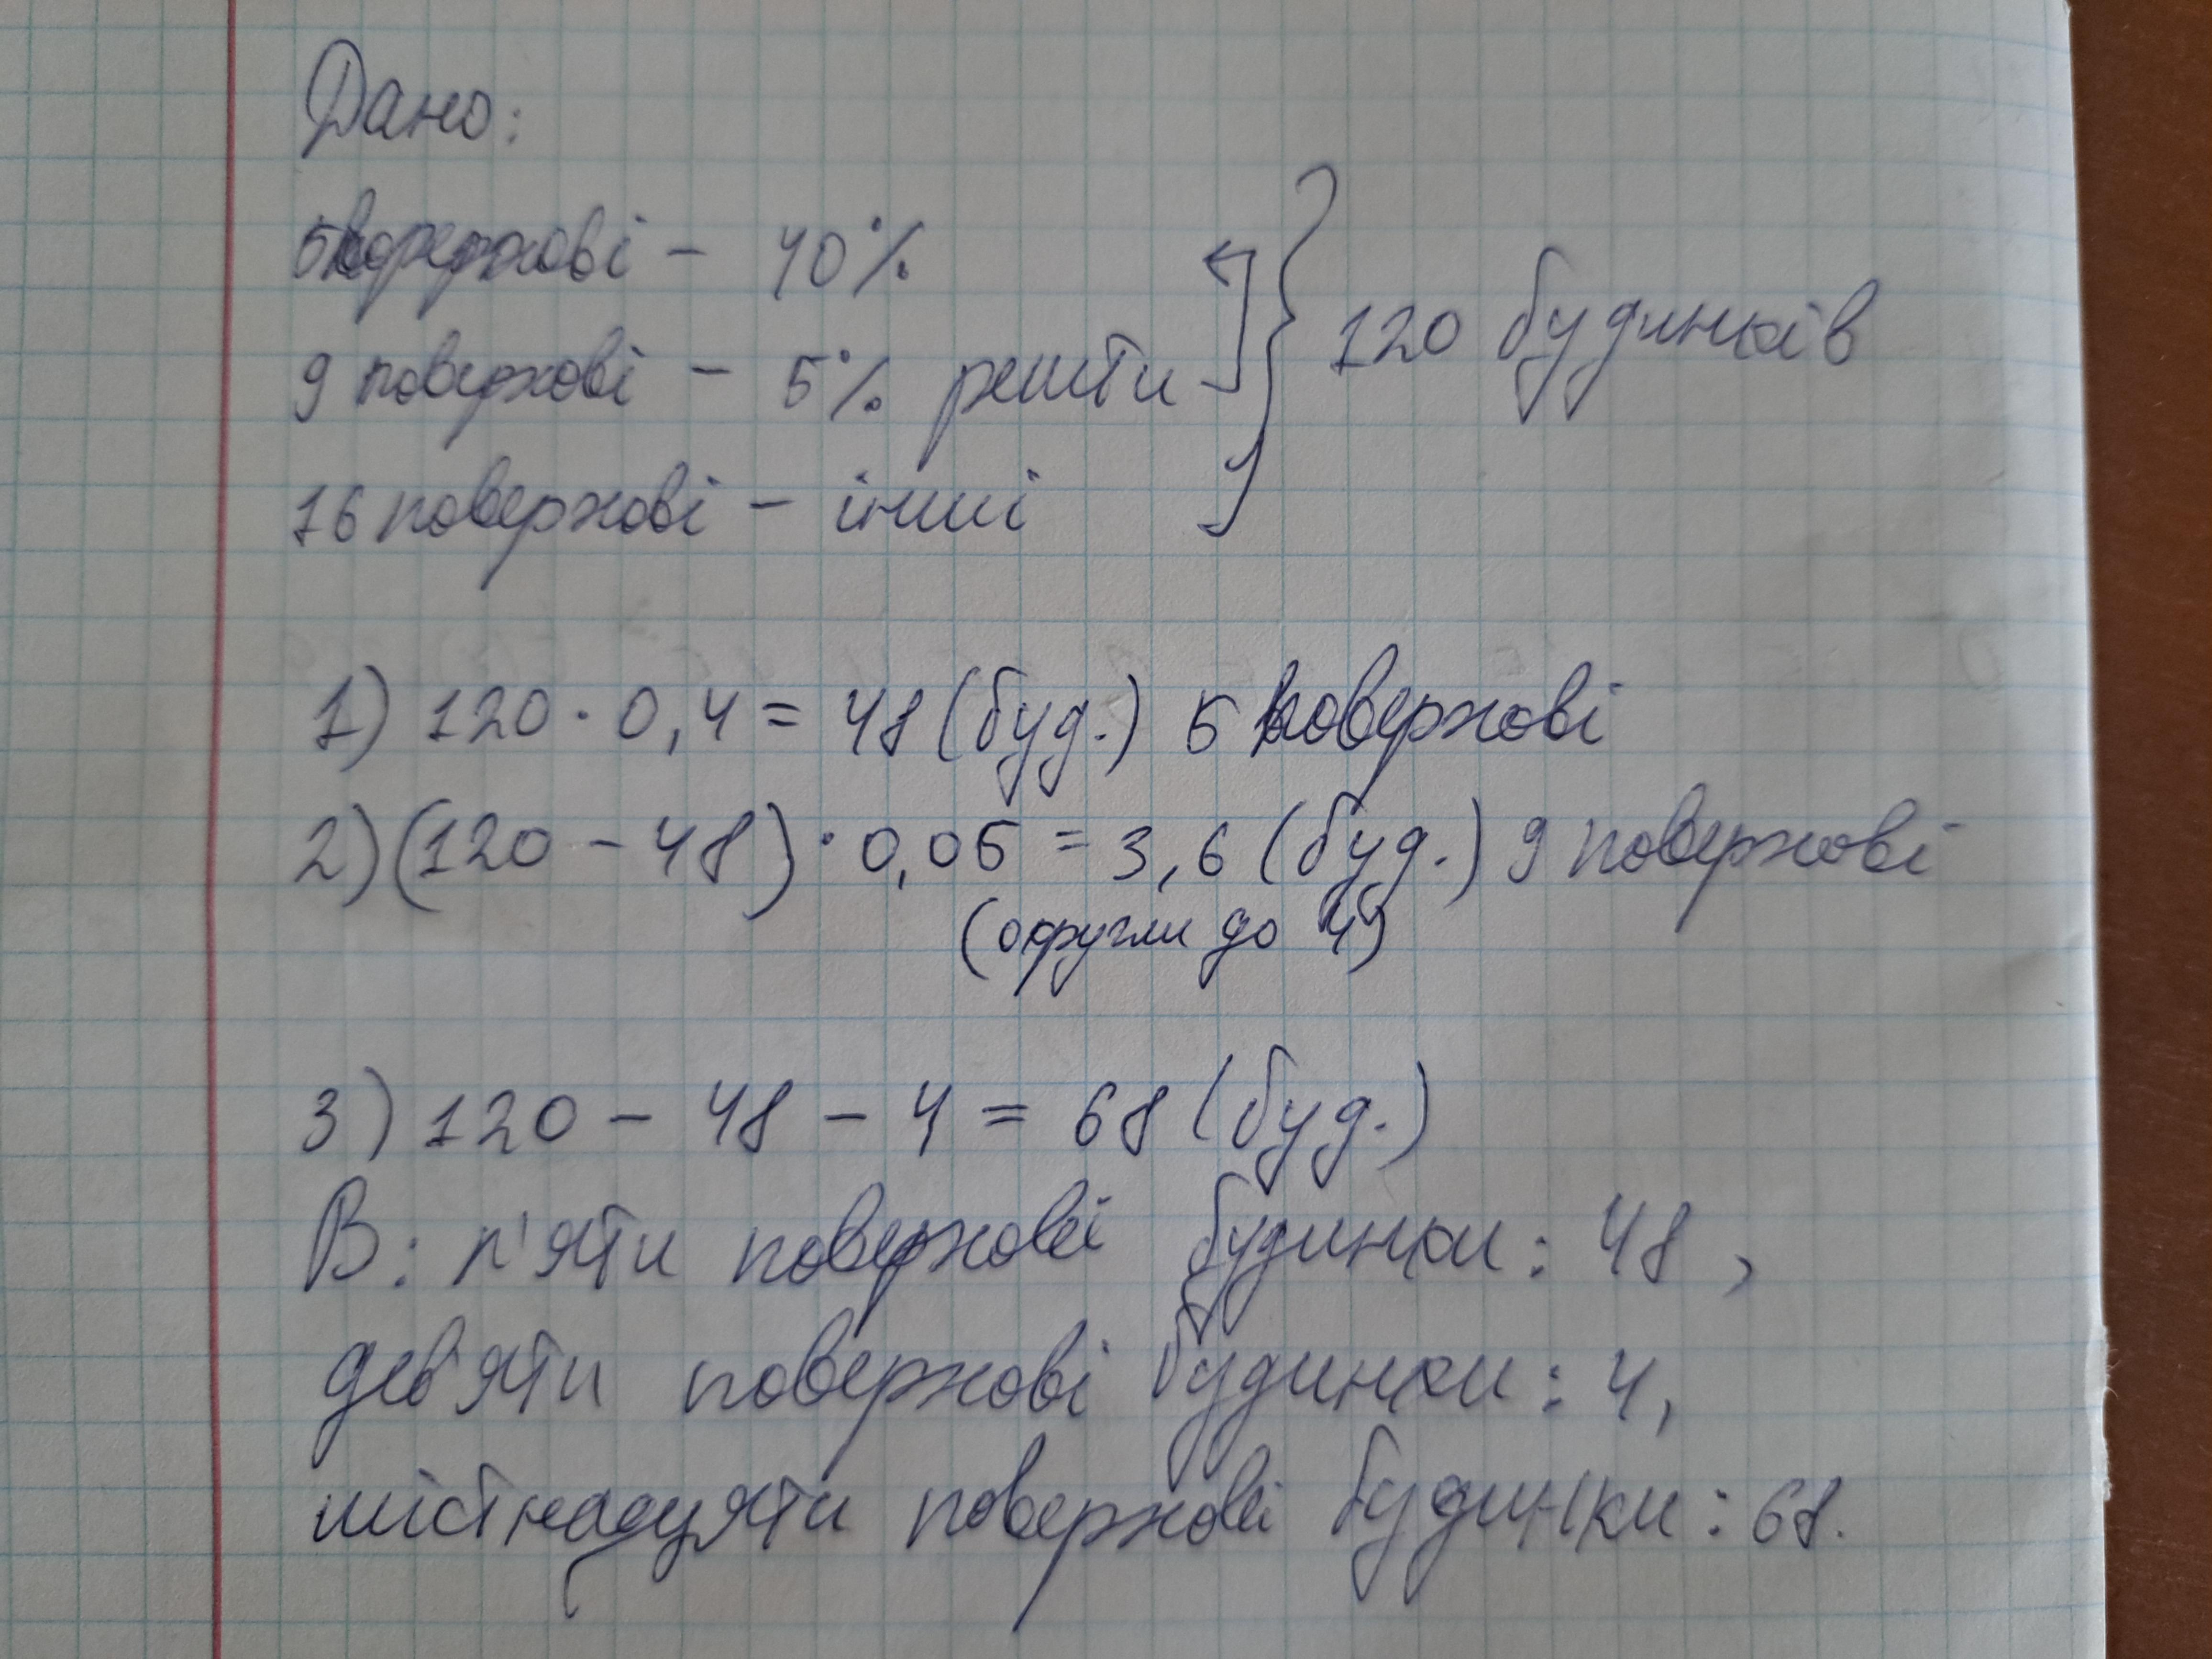 Дано:
5поверхові - 40%
9 поверхові - 5% решти
120 будинків
16 поверхові - інші
1) 120 · 0,4 = 48 (буд.) 5 поверхові
2) (120 - 48) · 0,05 = 3,6 (буд.) 9 поверхові
(округли до 4)
3) 120 - 48 - 4 = 68 (буд.)
В: п'яти поверхові будинки: 48,
дев'яти поверхові будинки: 4,
шістнадцяти поверхові будинки: 68.